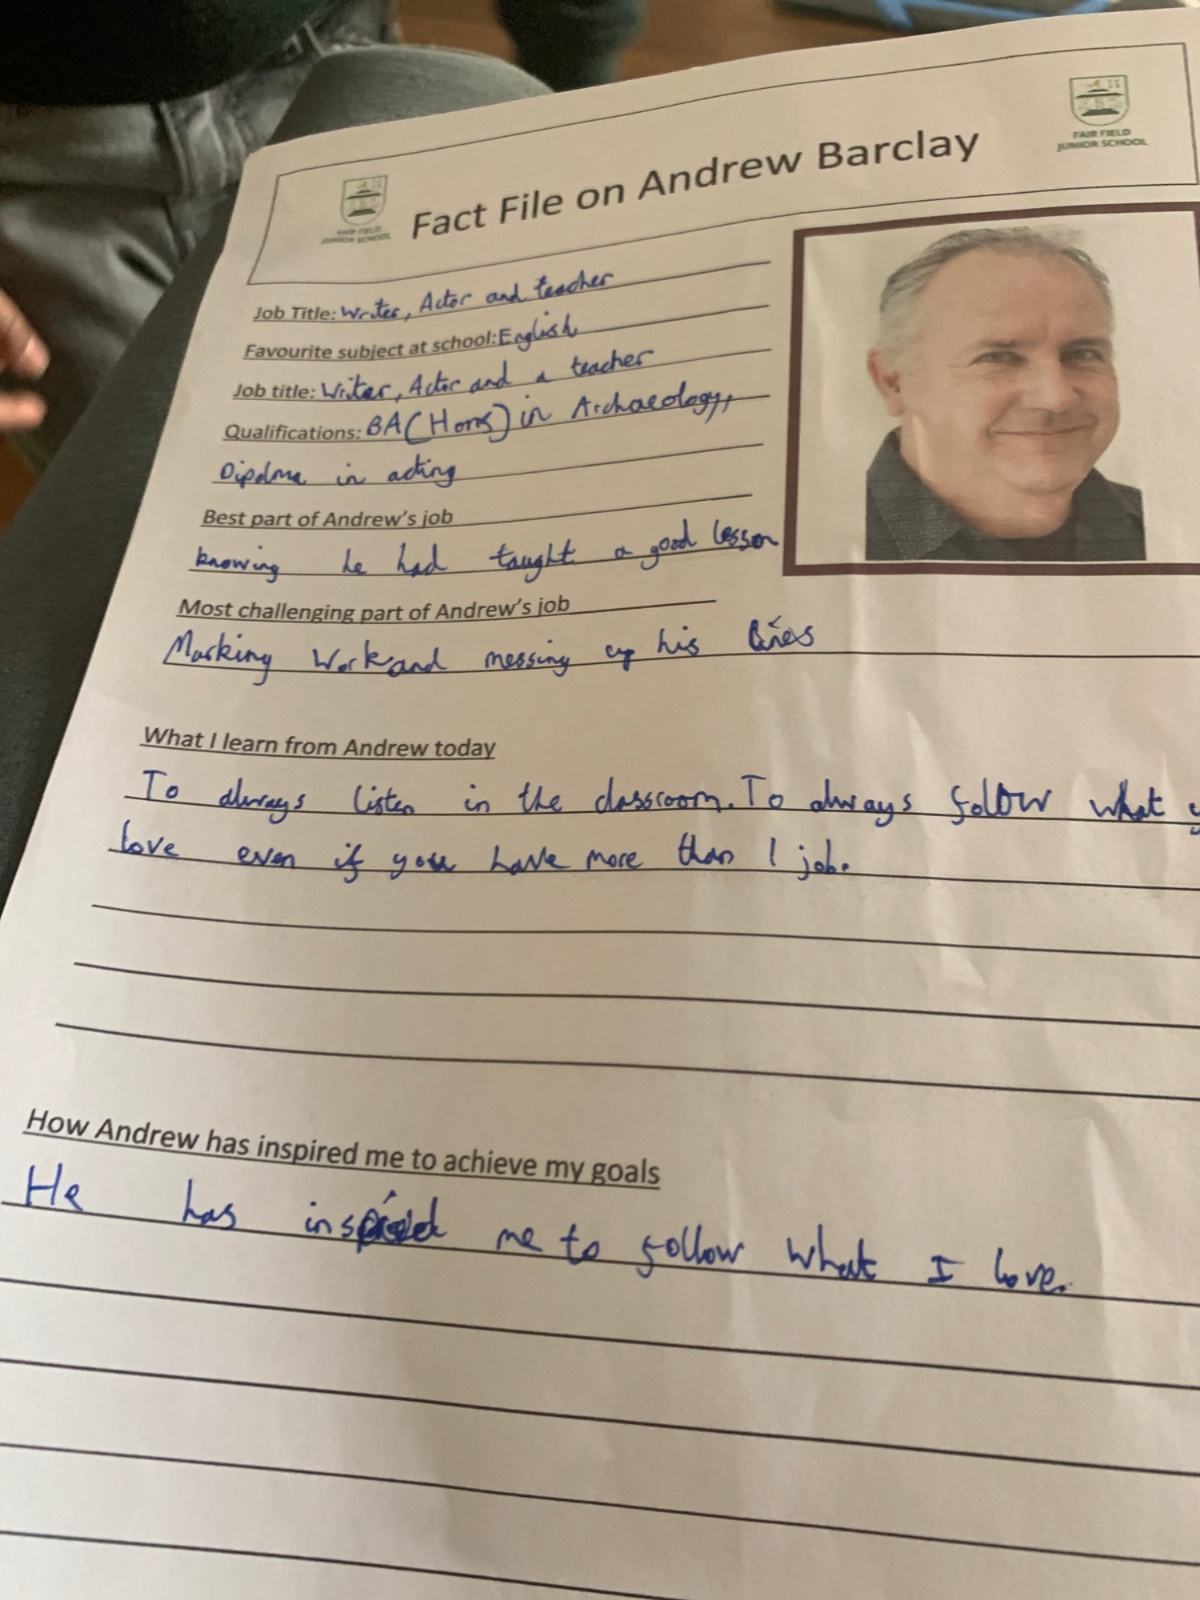 FAIR FIELD
JUNIOR SCHOOL
Fact File on Andrew Barclay
FAIR FIELD
JUNIOR SCHOOL
Job Title: Writer, Actor and teacher
Favourite subject at school: English
Job title: Writer, Actor and a teacher
Qualifications: BA (Hons) in Archaeology,
Diploma in acting
Best part of Andrew's job
knowing he had taught a good lesson
Most challenging part of Andrew's job
Marking Work and messing up his lines
What I learn from Andrew today
To always listen in the classroom. To always follow what y
love even if you have more than 1 job.
How Andrew has inspired me to achieve my goals
He has inspired me to follow what I love.